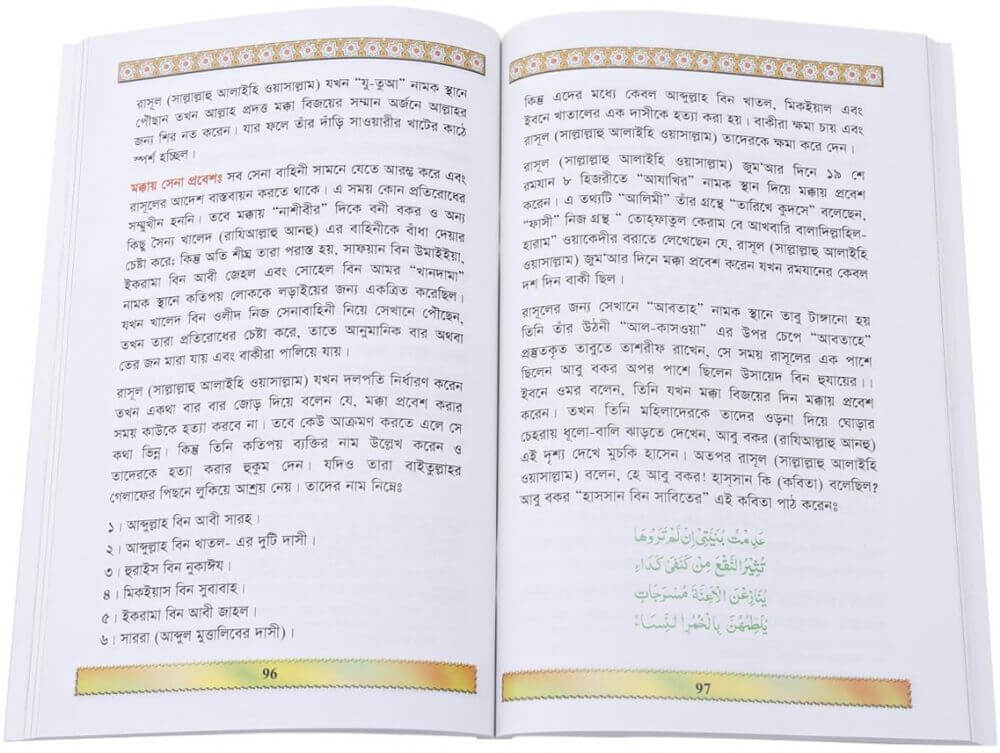 রাসূল (সাল্লাল্লাহু আলাইহি ওয়াসাল্লাম) যখন “যু-তুআ” নামক স্থানে
পৌছান তখন আল্লাহ প্রদত্ত মক্কা বিজয়ের সম্মান অর্জনে আল্লাহর
জন্য শির নত করেন। যার ফলে তাঁর দাঁড়ি সাওয়ারীর খাটের কাঠে
স্পর্শ হচ্ছিল।
মক্কায় সেনা প্রবেশঃ সব সেনা বাহিনী সামনে যেতে আরম্ভ করে এবং
রাসূলের আদেশ বাস্তবায়ন করতে থাকে। এ সময় কোন প্রতিরোধের
সম্মুখীন হননি। তবে মক্কায় “নাশীবীর” দিকে বনী বকর ও অন্য
কিছু সৈন্য খালেদ (রাযিআল্লাহু আনহু) এর বাহিনীকে বাঁধা দেয়ার
চেষ্টা করে; কিন্তু অতি শীঘ্র তারা পরাস্ত হয়, সাফয়ান বিন উমাইইয়া,
ইকরামা বিন আবী জেহল এবং সোহেল বিন আমর “খানদামা”
নামক স্থানে কতিপয় লোককে লড়াইয়ের জন্য একত্রিত করেছিল।
যখন খালেদ বিন ওলীদ নিজ সেনাবাহিনী নিয়ে সেখানে পৌছেন,
তখন তারা প্রতিরোধের চেষ্টা করে, তাতে আনুমানিক বার অথবা
তের জন মারা যায় এবং বাকীরা পালিয়ে যায়।
রাসূল (সাল্লাল্লাহু আলাইহি ওয়াসাল্লাম) যখন দলপতি নির্ধারণ করেন
তখন একথা বার বার জোড় দিয়ে বলেন যে, মক্কা প্রবেশ করার
সময় কাউকে হত্যা করবে না। তবে কেউ আক্রমণ করতে এলে সে
কথা ভিন্ন। কিন্তু তিনি কতিপয় ব্যক্তির নাম উল্লেখ করেন ও
তাদেরকে হত্যা করার হুকুম দেন। যদিও তারা বাইতুল্লাহর
গেলাফের পিছনে লুকিয়ে আশ্রয় নেয়। তাদের নাম নিম্নেঃ
১। আব্দুল্লাহ বিন আবী সারহ।
২। আব্দুল্লাহ বিন খাতল- এর দুটি দাসী।
৩। হুরাইস বিন নুকাঈয।
৪। মিকইয়াস বিন সুবাবাহ।
৫। ইকরামা বিন আবী জাহল।
৬। সাররা (আব্দুল মুত্তালিবের দাসী)।
96
কিন্তু এদের মধ্যে কেবল আব্দুল্লাহ বিন খাতল, মিকইয়াল এবং
ইবনে খাতালের এক দাসীকে হত্যা করা হয়। বাকীরা ক্ষমা চায় এবং
রাসূল (সাল্লাল্লাহু আলাইহি ওয়াসাল্লাম) তাদেরকে ক্ষমা করে দেন।
রাসূল (সাল্লাল্লাহু আলাইহি ওয়াসাল্লাম) জুম‘আর দিনে ১৯ শে
রমযান ৮ হিজরীতে “আযাখির” নামক স্থান দিয়ে মক্কায় প্রবেশ
করেন। এ তথ্যটি “আলিমী” তাঁর গ্রন্থে “তারিখে কুদসে” বলেছেন,
“ফাসী” নিজ গ্রন্থ “ তোহ্ফাতুল কেরাম বে আখবারি বালাদিল্লাহিল-
হারাম” ওয়াকেদীর বরাতে লেখেছেন যে, রাসূল (সাল্লাল্লাহু আলাইহি
ওয়াসাল্লাম) জুম‘আর দিনে মক্কা প্রবেশ করেন যখন রমযানের কেবল
দশ দিন বাকী ছিল।
রাসূলের জন্য সেখানে “আবতাহ” নামক স্থানে তাবু টাঙ্গানো হয়
তিনি তাঁর উঠনী “আল-কাসওয়া” এর উপর চেপে “আবতাহে”
প্রস্তুতকৃত তাবুতে তাশরীফ রাখেন, সে সময় রাসূলের এক পাশে
ছিলেন আবু বকর অপর পাশে ছিলেন উসায়েদ বিন হুযায়ের।।
ইবনে ওমর বলেন, তিনি যখন মক্কা বিজয়ের দিন মক্কায় প্রবেশ
করেন। তখন তিনি মহিলাদেরকে তাদের ওড়না দিয়ে ঘোড়ার
চেহরায় ধূলো-বালি ঝাড়তে দেখেন, আবু বকর (রাযিআল্লাহু আনহু)
এই দৃশ্য দেখে মুচকি হাসেন। অতপর রাসূল (সাল্লাল্লাহু আলাইহি
ওয়াসাল্লাম) বলেন, হে আবু বকর! হাস্সান কি (কবিতা) বলেছিল?
আবু বকর “হাসসান বিন সাবিতের” এই কবিতা পাঠ করেনঃ
عَدِمْتُ بُنَيَّتِيْ اِنْ لَّمْ تَرَوْهَا
تُثِيْرُ النَّقْعَ مِنْ كَنَفَيْ كَدَاءِ
يُنَازِعْنَ الْاَعِنَّةَ مُسْرَجَاتٍ
يُلَطِّمُهُنَّ بِالْخُمُرِ النِّسَاءُ
97